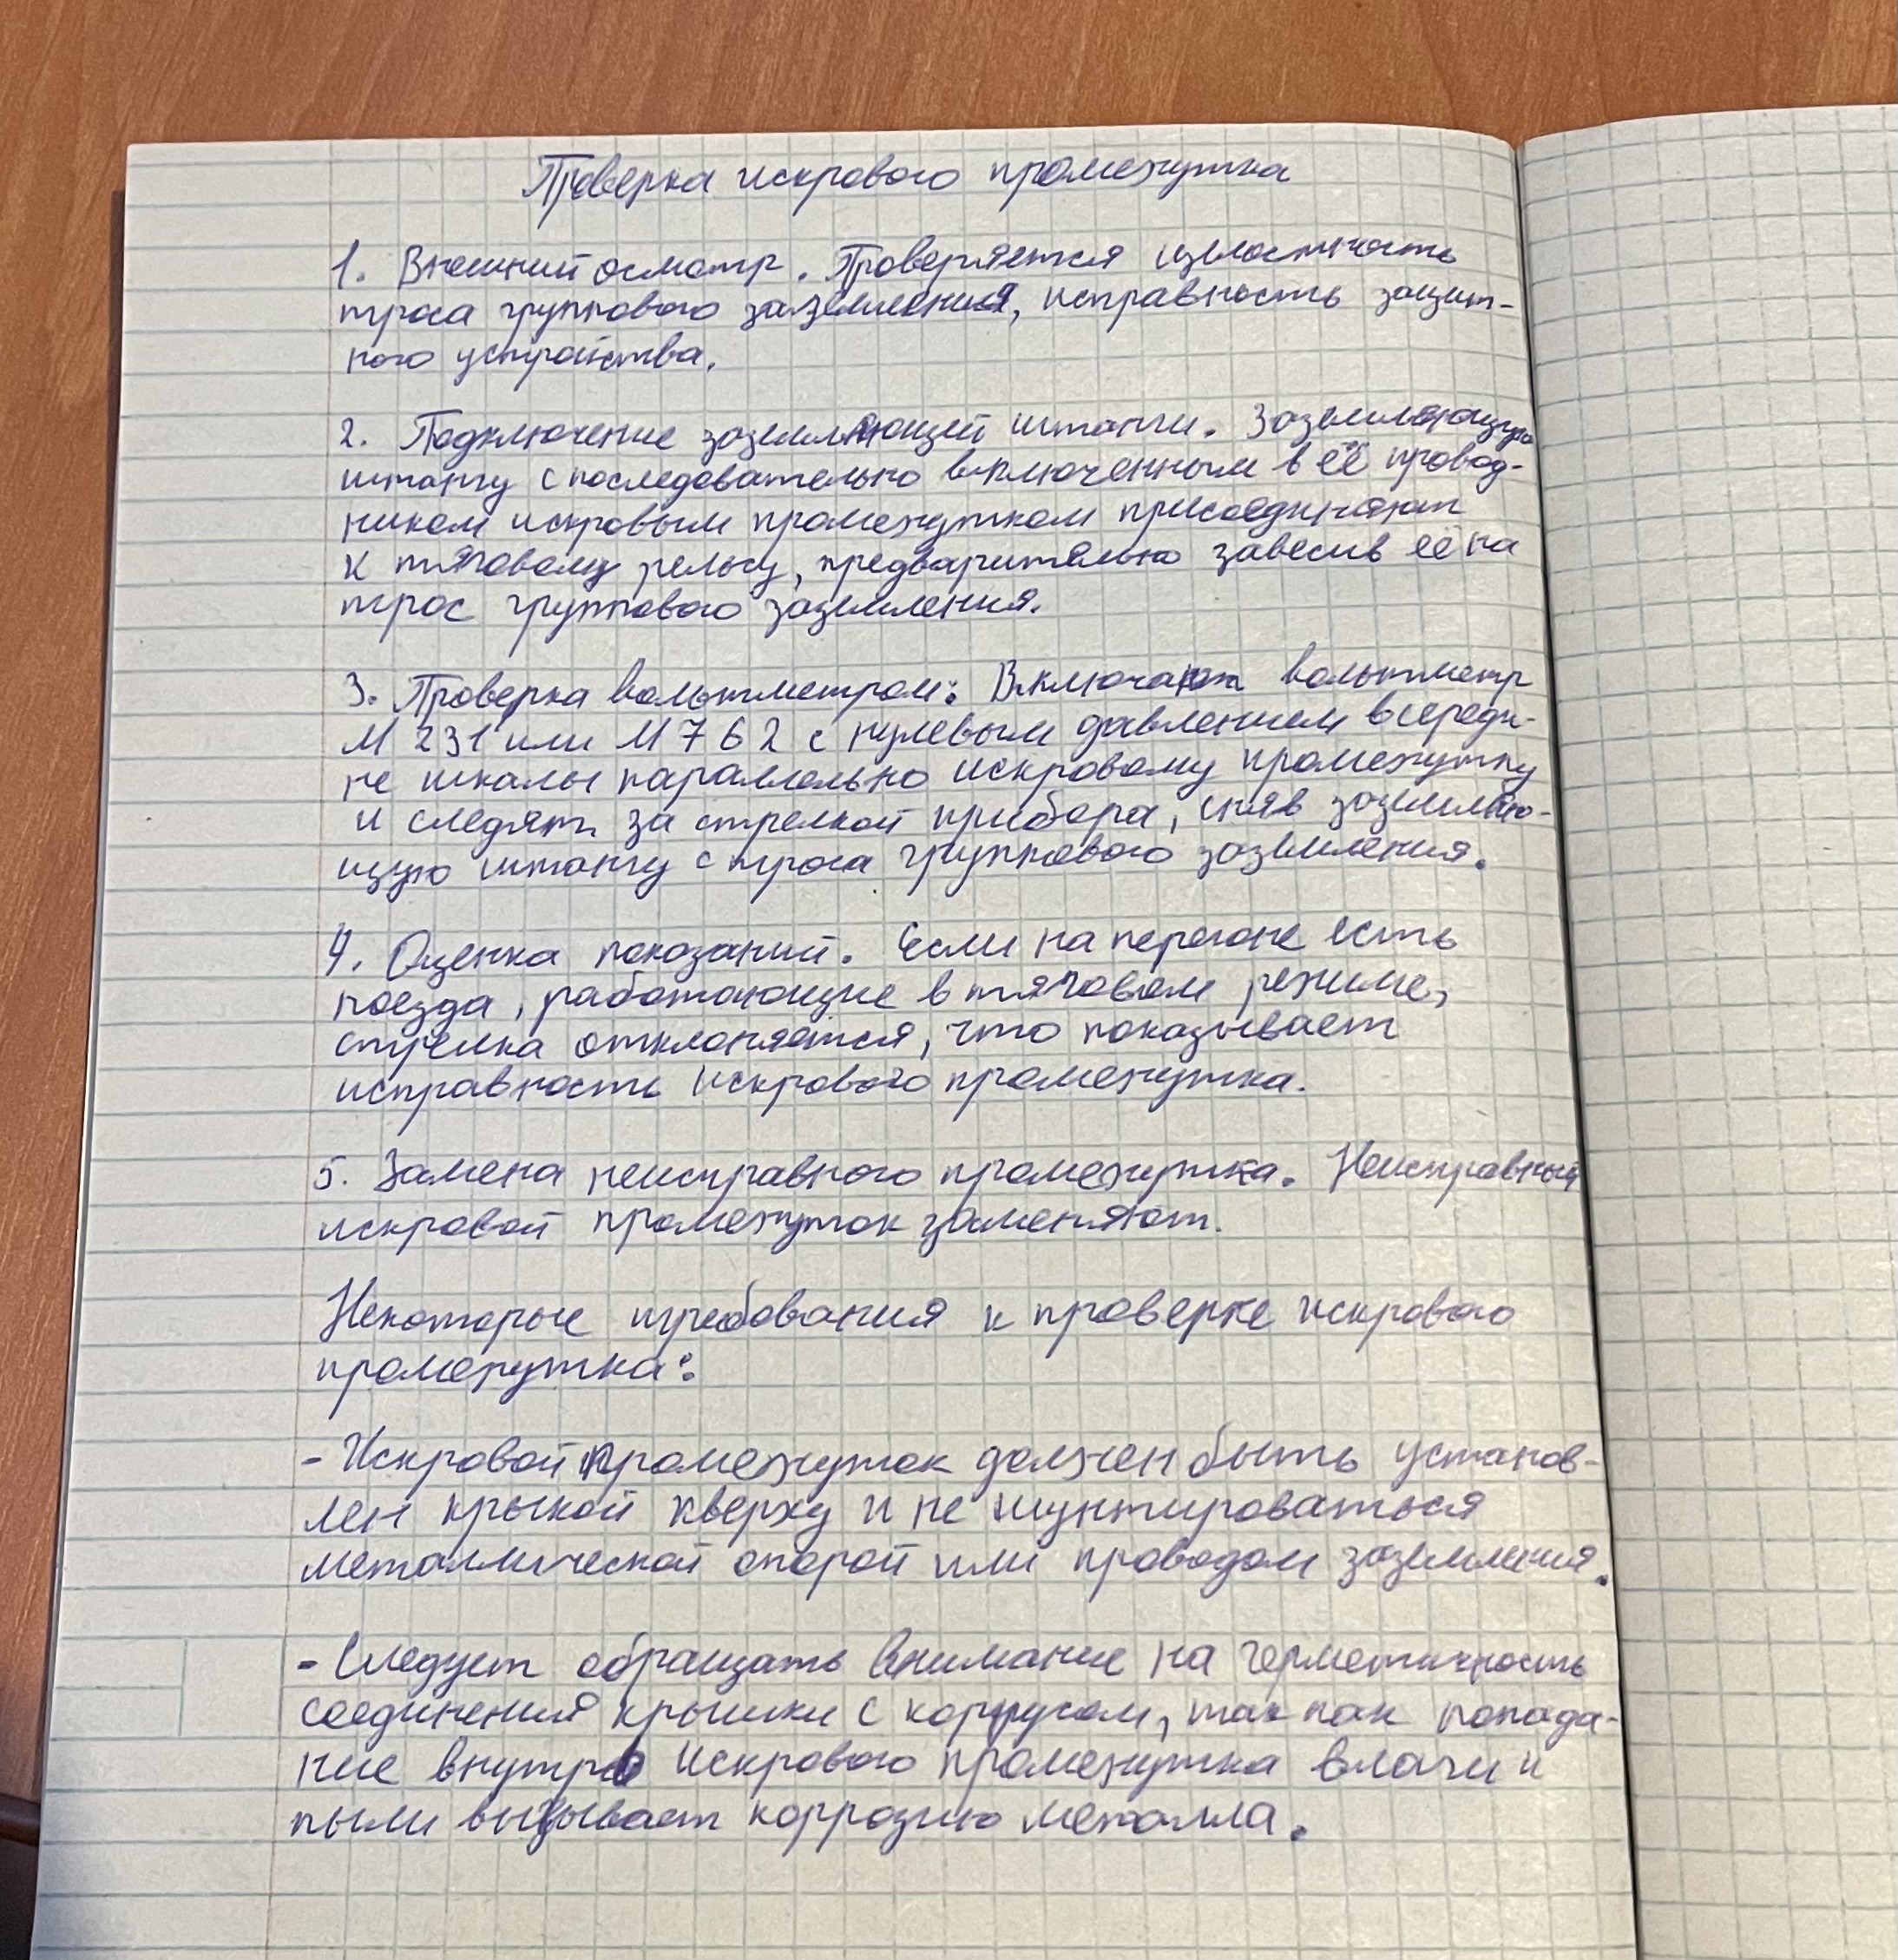 Проверка искрового промежутка
1. Внешний осмотр. Проверяется целостность
троса группового заземления, исправность защит-
ного устройства.
2. Подключение заземляющей штанги. Заземляющую
штангу с последовательно включенным в её провод-
ником искровым промежутком присоединяют
к тяговому рельсу, предварительно завесив её на
трос группового заземления.
3. Проверка вольтметром: Включают вольтметр
М 231 или М 762 с нулевым давлением в середи-
не шкалы параллельно искровому промежутку
и следят за стрелкой прибора, сняв заземляю-
щую штангу с троса группового заземления.
4. Оценка показаний. Если на перегоне есть
поезда, работающие в тяговом режиме,
стрелка отклоняется, что показывает
исправность искрового промежутка.
5. Замена неисправного промежутка. Неисправный
искровой промежуток заменяют.
Некоторые требования к проверке искрового
промежутка:
- Искровой промежуток должен быть установ-
лен крыкой кверху и не шунтироваться
металлической опорой или проводом заземления.
- Следует обращать внимание на герметичность
соединения крышки с корпусом, так как попада-
ние внутрь искрового промежутка влаги и
пыли вызывает коррозию металла.